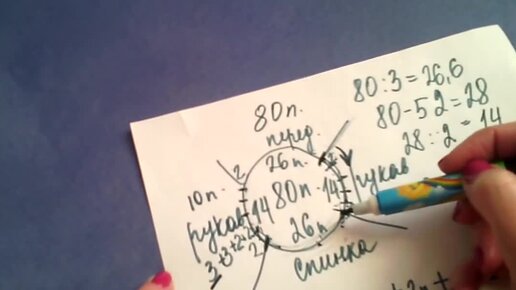 80п.
перед.
26п.
80:3=26,6
80-52=28
28:2=14
2
2
10п.
рукав
14
80п.
14
рукав
26п.
2
спинка
3+3+2+2